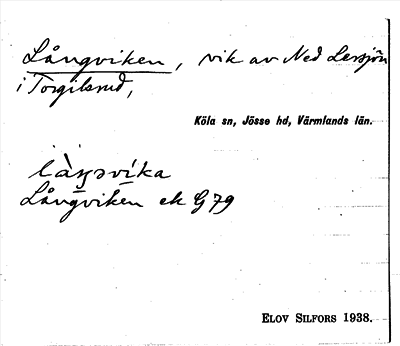 Långviken, vik av Ned Lersjön
i Torgilsrud,
Köla sn, Jösse hd, Värmlands län.
Långviken ek G 79
ELOV SILFORS 1938.